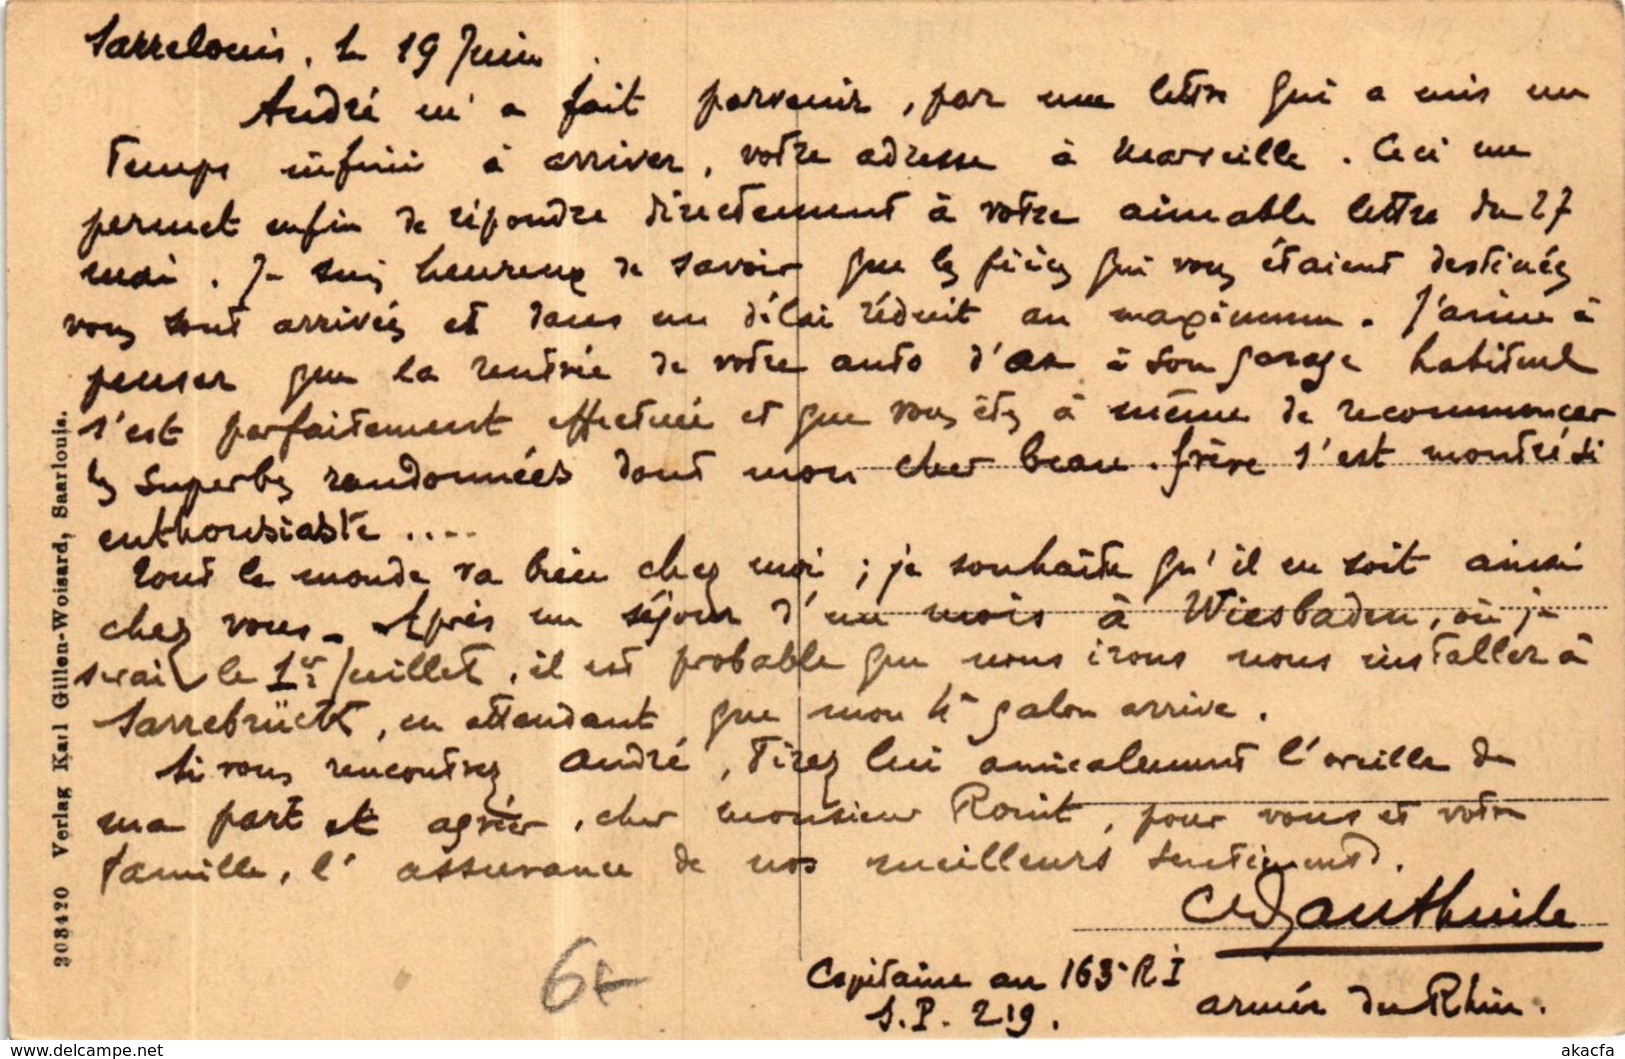 Sarrelouis, le 19 Juin
André m'a fait parvenir, par une lettre qui a mis un
temps infini à arriver, votre adresse à Marseille. Ceci me
permet enfin de répondre directement à votre aimable lettre du 27
mai. Je suis heureux de savoir que les pièces qui vous étaient destinées
vous sont arrivées et dans un délai réduit au maximum. J'aime à
penser que la rentrée de votre auto d'Ax à son garage habituel
s'est parfaitement effectuée et que vous êtes à même de recommencer
les superbes randonnées dont mon cher beau-frère s'est montré si
enthousiaste ....
Tout le monde va bien chez moi ; je souhaite qu'il en soit ainsi
chez vous. Après un séjour d'un mois à Wiesbaden, où je
serai le 1er Juillet, il est probable que nous irons nous installer à
Sarrebrück, en attendant que mon 4e galon arrive.
Si vous rencontrez André, tirez lui amicalement l'oreille de
ma part et agréer, cher monsieur Rouit, pour vous et votre
famille, l'assurance de nos meilleurs sentiments.
Capitaine au 163e R I
S. P. 219.
armée du Rhin.
6€
208420 Verlag Karl Gillen-Woisard, Saarlouis.
akacfa